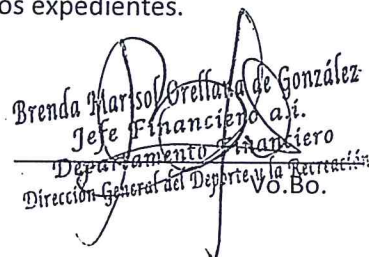 os expedientes.
Brenda Marisol Orellana de González
Jefe Financiero a.i.
Departamento Financiero
Dirección General del Deporte y la Recreación
Vo.Bo.